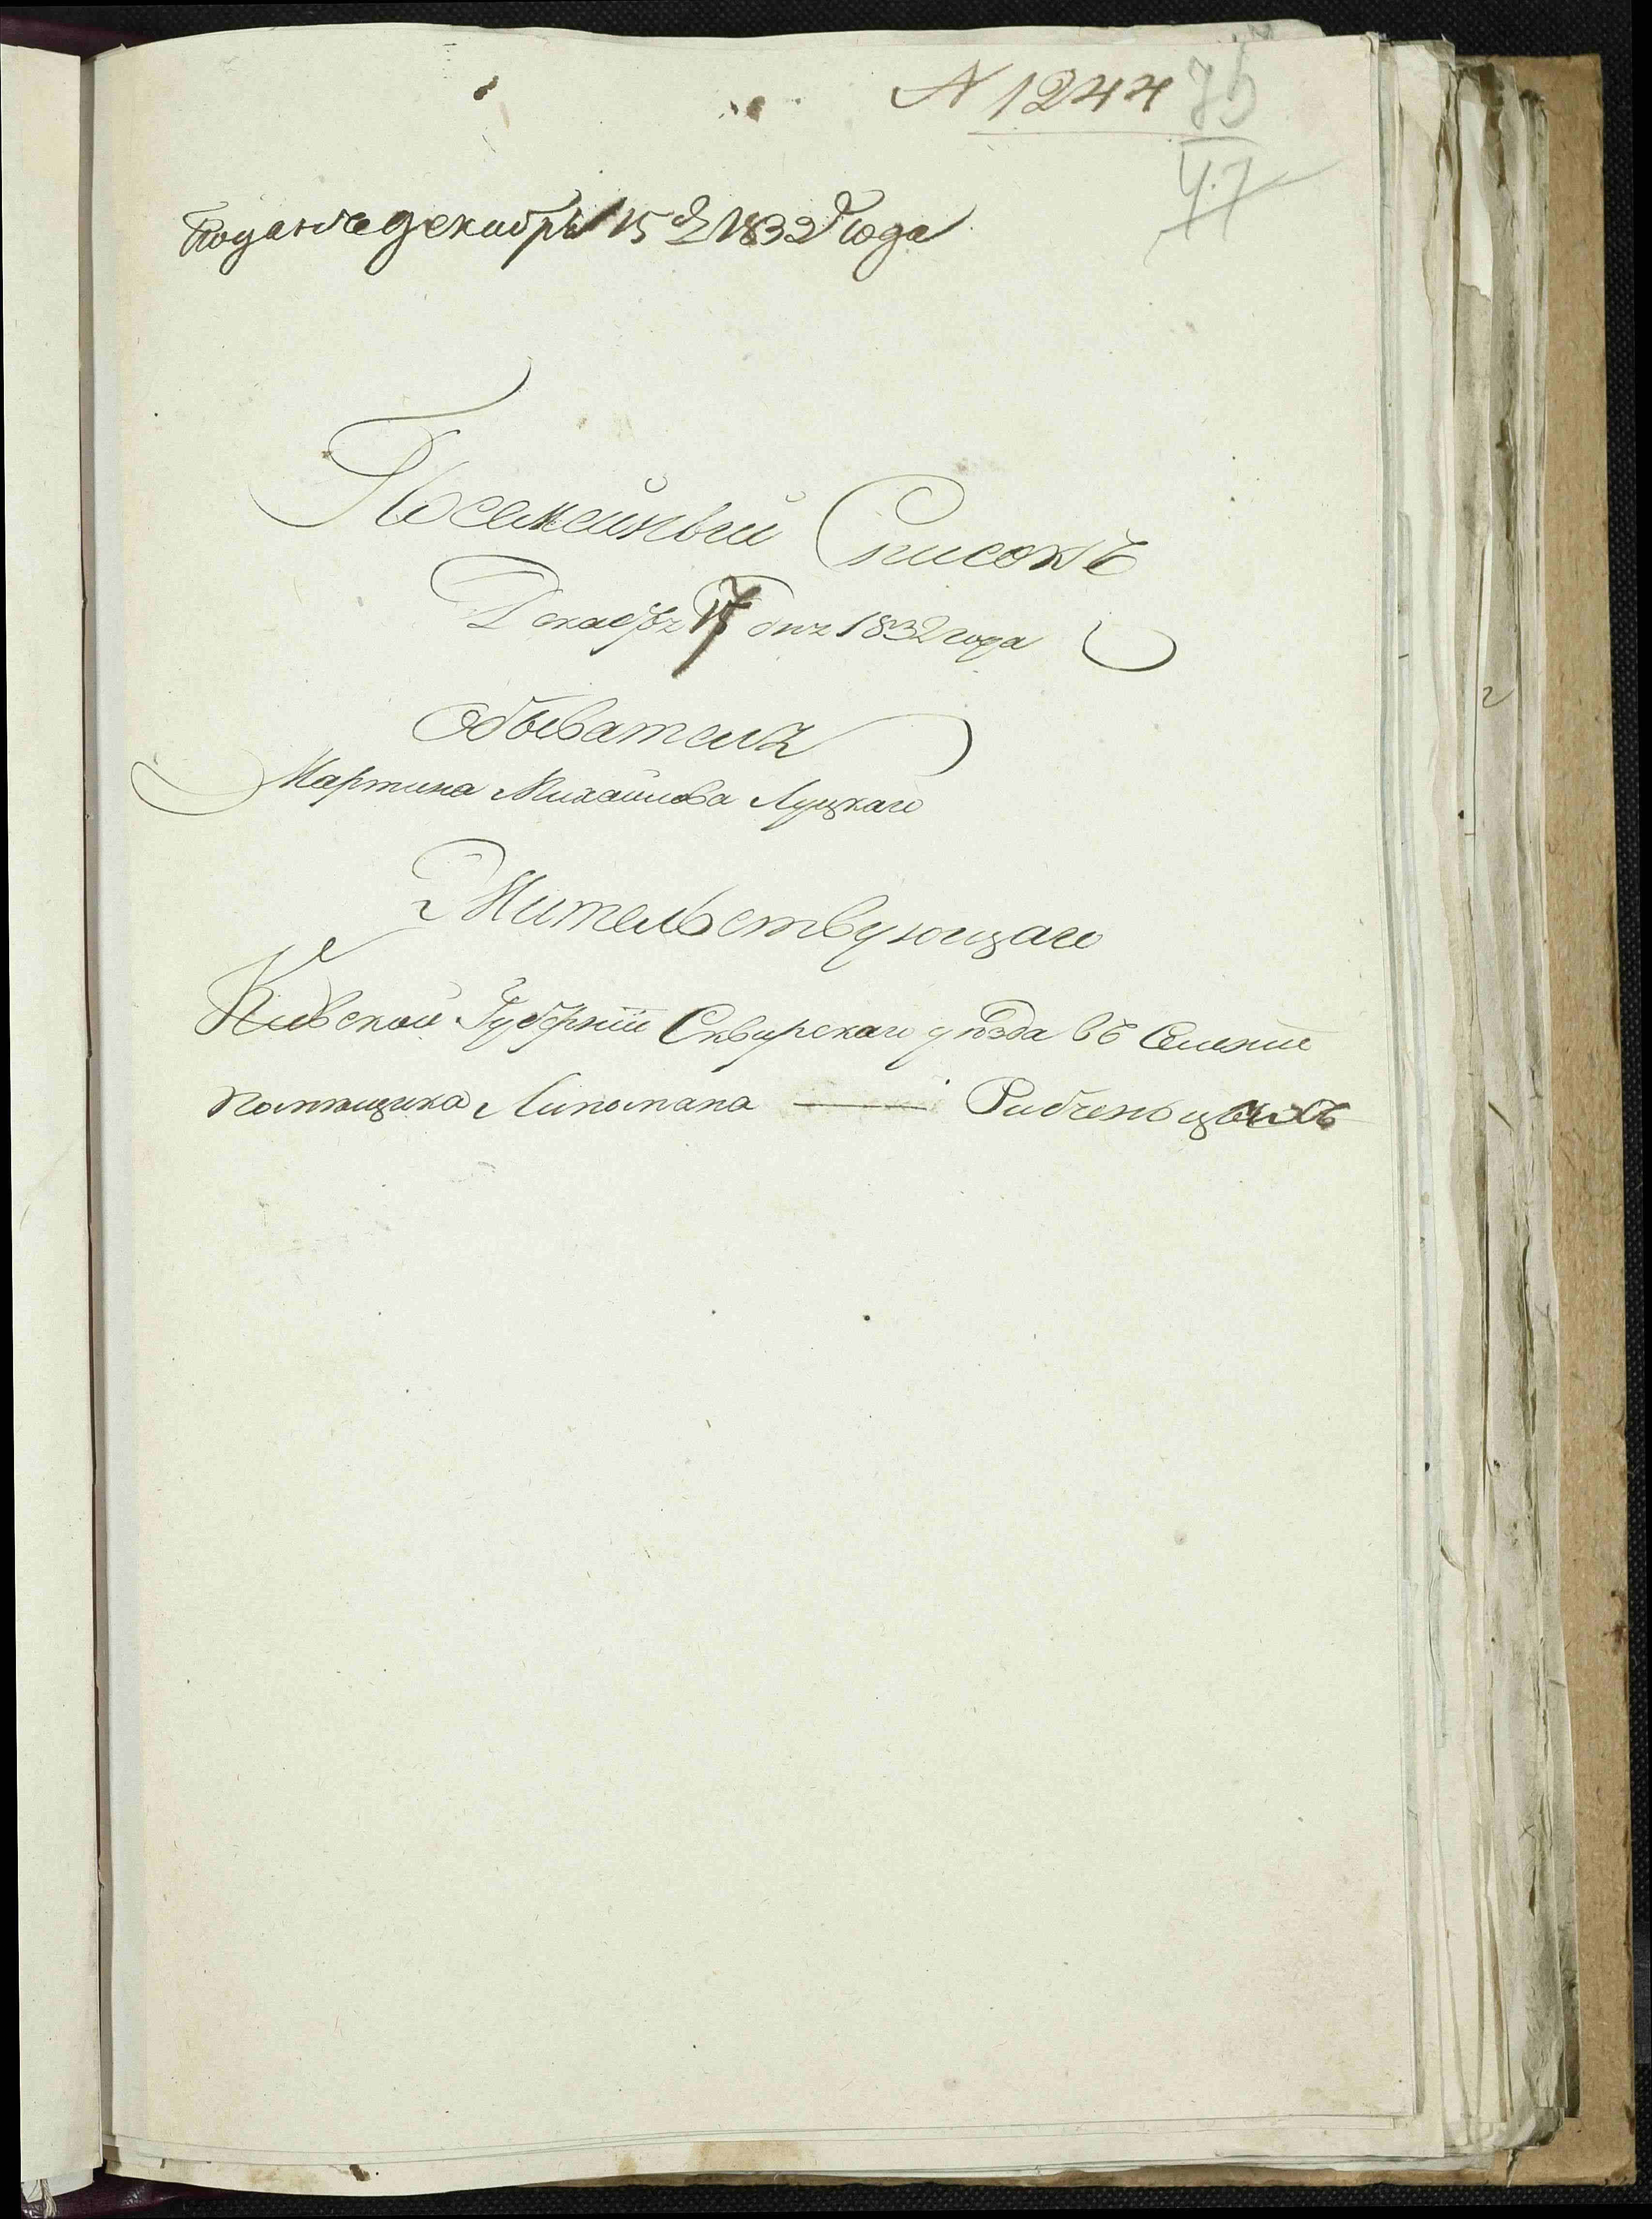 N 1244 75
47
Поданъ декабря 15 д 1832 года
Посемейный Списокъ
Декабря 15 дня 1832 года
Обывателя
Мартина Михайлова Луцкаго
Жительствующаго
Киевской Губернiи Сквирскаго уѣзда въ Селенiе
помѣщика Липомана — Рибченьцахъ